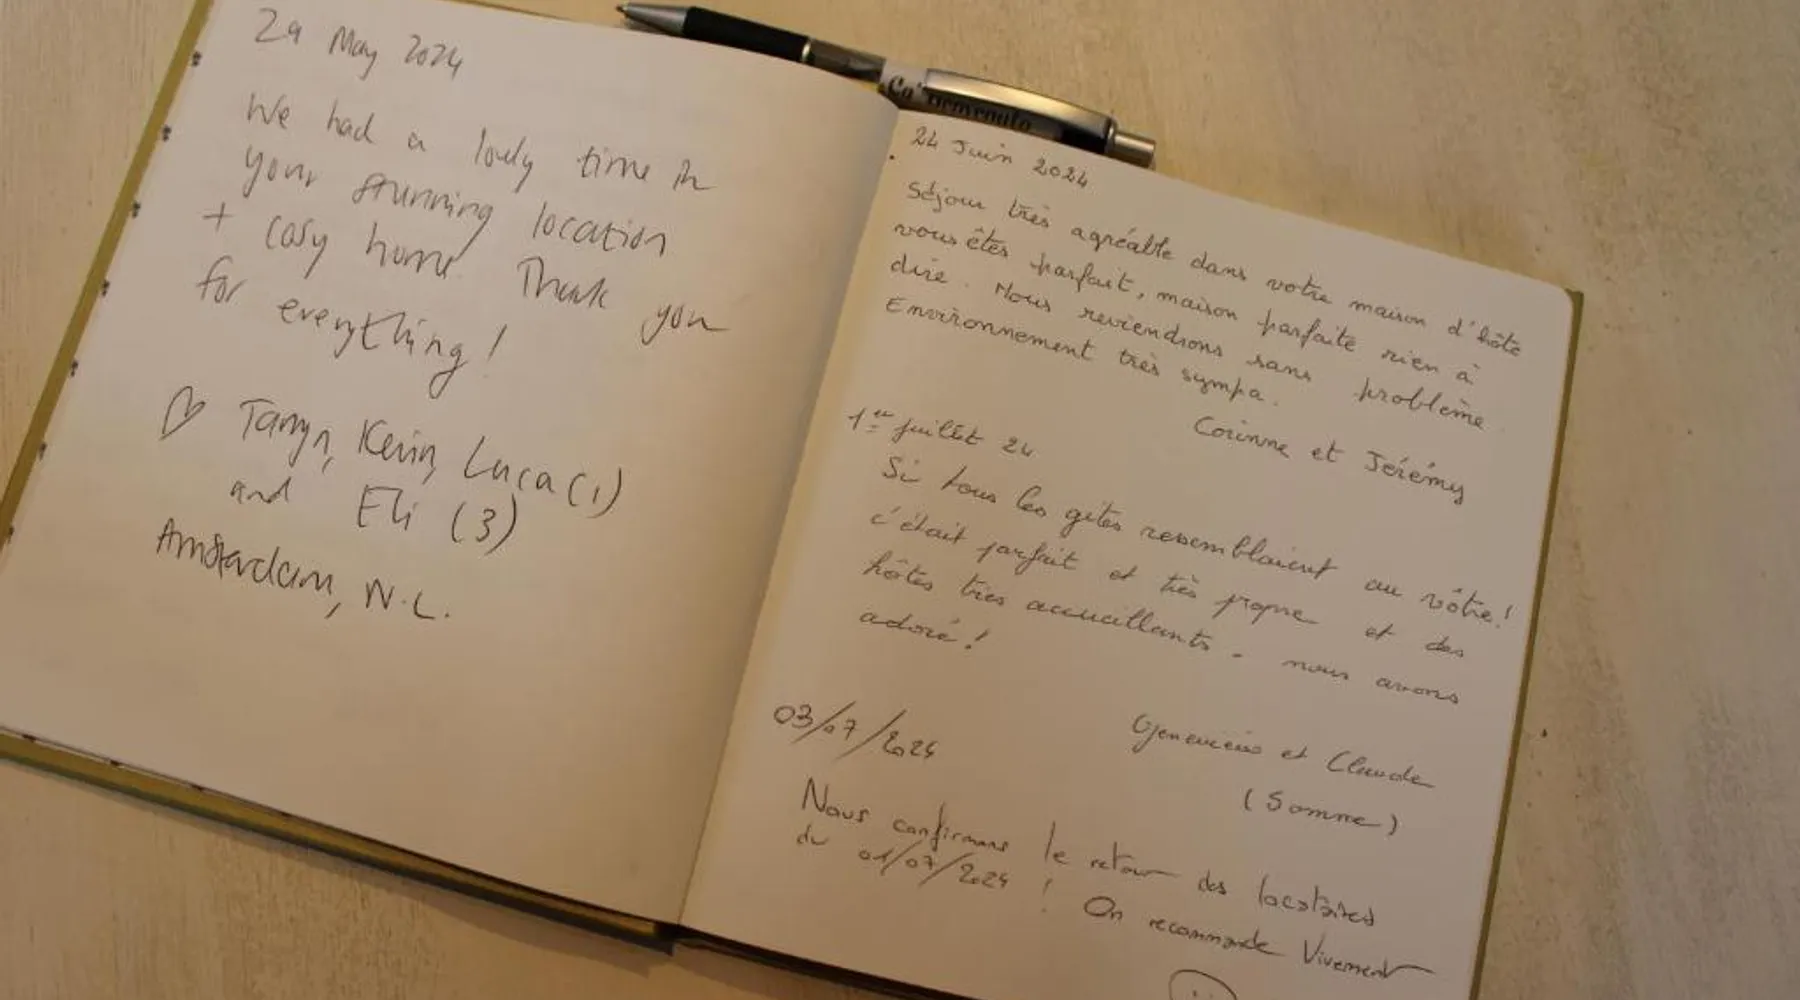 29 May 2024
We had a lovely time in
your stunning location
+ cosy home. Thank you
for everything!
♡ Tanya, Kevin, Luca (1)
and Eli (3)
Amsterdam, N.L.
Ca' Benvenuto
24 Juin 2024
Séjour très agréable dans votre maison d'hôte
vous êtes parfait, maison parfaite rien à
dire. Nous reviendrons sans problème
Environnement très sympa.
Corinne et Jérémy
1er juillet 24
Si tous les gîtes ressemblaient au vôtre!
c'était parfait et très propre et des
hôtes très accueillants. nous avons
adoré!
et Claude
(Somme)
03/07/2024
Nous confirmons le retour des locataires
du 01/07/2024 ! On recommande Vivement